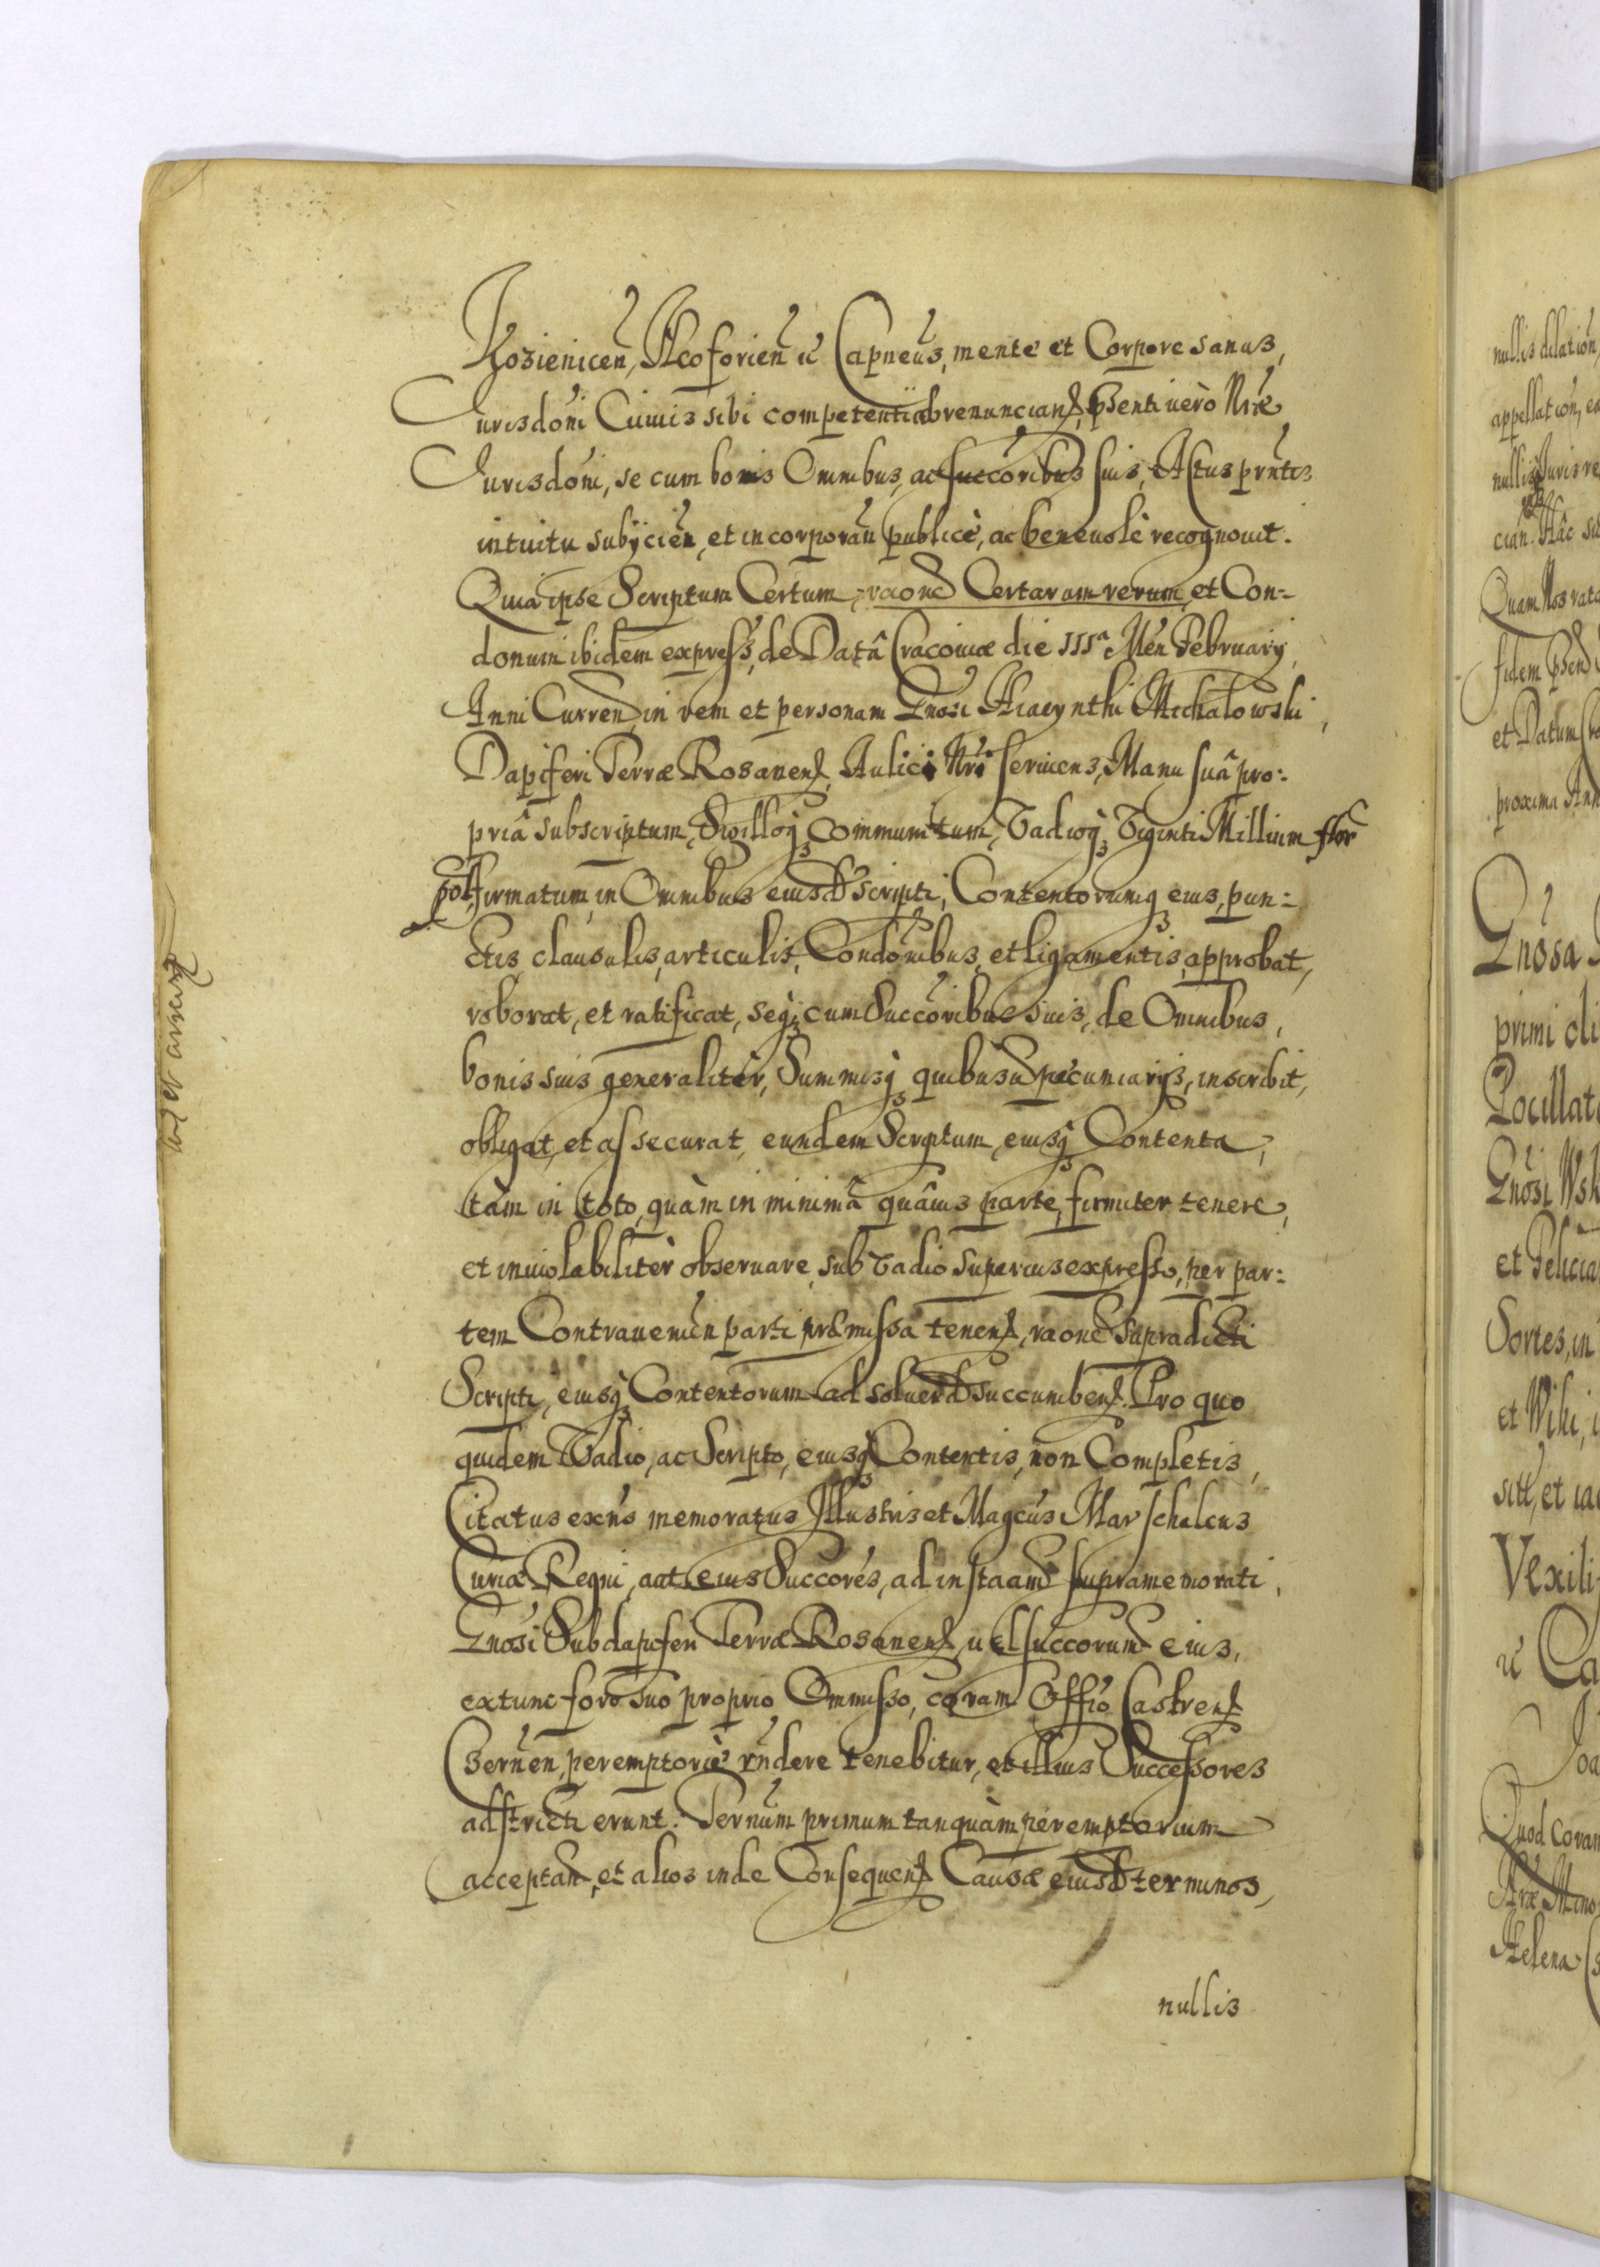 Kozienicen, Ałcoforien et Capneus, mente et Corpore sanus,
Iurisdoni Cuiuis sibi competenti abrenuncian, pnti uerò Nrae
Iurisdoni, se cum bonis Omnibus, ac succoribus suis, Actus prntis
intuitu subijcien, et incorporan publicè, ac beneuolè recognouit.
Quia ipse Scriptum Certum, raone Certarum rerum, et Con:
donum ibidem express, de Datâ Cracouiae die IIIa Men February
Anni Curren, in rem et personam Gnosi Hiacynthi Michałowski,
Dapiferi Terrae Rosanen, Aulici Nri seruiens, Manu suâ pro:
priâ subscriptum, Sigilloq communitum, Vadioq Viginti Millium flor
pol, firmatum, in Omnibus eiusd scripti, Contentorumq eius, pun:
ctis, clausulis, articulis, Condonibus, et ligamentis, approbat,
roborat, et ratificat, seq cum Succoribus suis, de Omnibus,
bonis suis generalitèr, Summisq quibusuis pecuniarijs, inscribit,
obligat, et assecurat, eundem Scriptum, eiusq Contenta,
tàm in toto, quàm in minimâ quâuis parte, firmiter tenere,
et inuiolabilitèr obseruare, sub Vadio superius expresso, per par:
tem Contrauenien parti praemissa tenen, raone supradicti
Scripti, eiusq Contentorum ad soluend succumben. Pro quo
quidem Vadio, ac Scripto, eiusq Contentis, non Completis,
Citatus exns memoratus Illustris et Magcus Marschalcus
Curiae Regni, aut eius Succores, ad instaam supramemorati,
Gnosi Subdapiferi Terrae Rosanen, uel succorum eius,
extunc foro suo proprio Omisso, coram Offio Castren
Czernen, peremptoriè rndere tenebitur, et illius Successores
adstricti erunt. Ternum primum tanquàm peremptorium
acceptan, et alios inde Consequen Causae eiusd terminos,
nullis